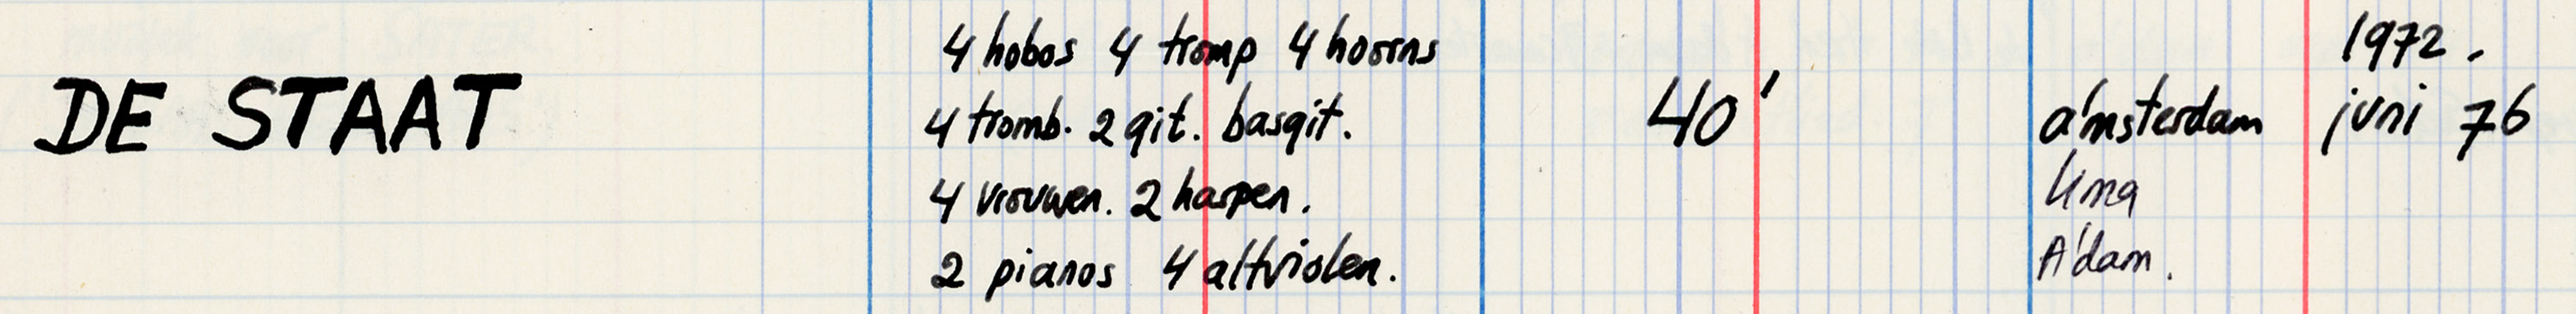 DE STAAT
4 hobos 4 tromp 4 hoorns
4 tromb. 2 git. basgit.
4 vrouwen. 2 harpen.
2 pianos 4 altviolen.
40'
1972.
amsterdam juni 76
A'dam.